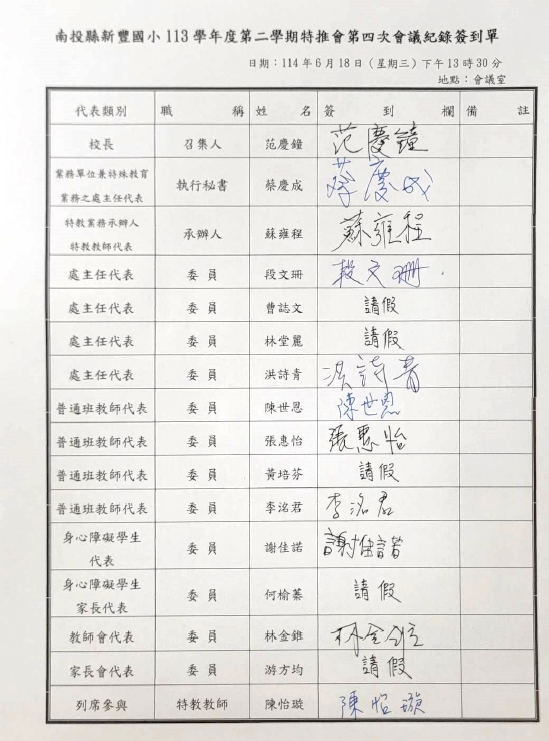 南投縣新豐國小 113 學年度第二學期特推會第四次會議紀錄簽到單
日期：114 年 6 月 18 日（星期三）下午 13 時 30 分
地點：會議室
代表類別 職稱 姓名 簽到欄 備註
校長 召集人 范慶鐘 范慶鐘
業務單位兼特殊教育
業務之處主任代表 執行秘書 蔡慶成 蔡慶成
特教業務承辦人
特教教師代表 承辦人 蘇雍程 蘇雍程
處主任代表 委員 段文珊 段文珊
處主任代表 委員 曹誌文 請假
處主任代表 委員 林堂麗 請假
處主任代表 委員 洪詩青 洪詩青
普通班教師代表 委員 陳世恩 陳世恩
普通班教師代表 委員 張惠怡 張惠怡
普通班教師代表 委員 黃培芬 請假
普通班教師代表 委員 李洺君 李洺君
身心障礙學生
代表 委員 謝佳諾 謝佳諾
身心障礙學生
家長代表 委員 何榆蓁 請假
教師會代表 委員 林金錐 林金錐
家長會代表 委員 游方均 請假
列席參與 特教教師 陳怡璇 陳怡璇